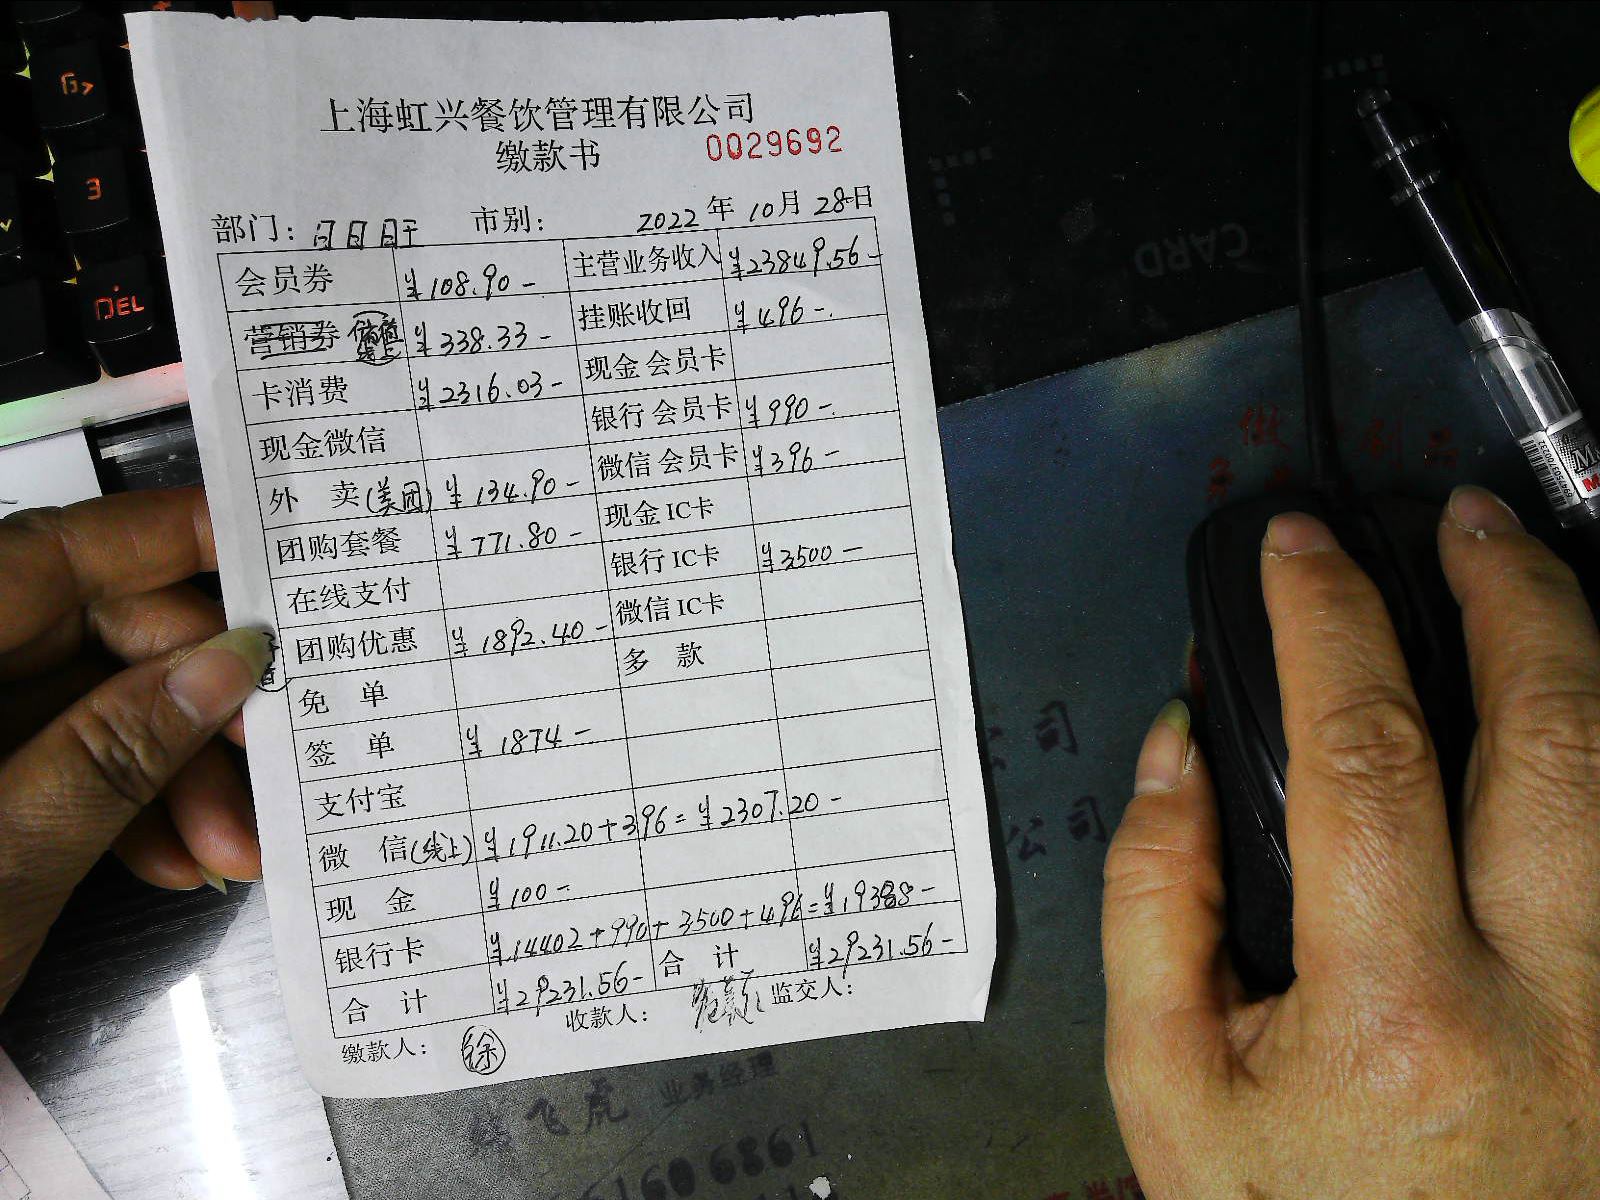 上海虹兴餐饮管理有限公司
缴款书 0029692
部门: 市别: 2022年10月28日
会员券 ¥108.90- 主营业务收入 ¥23849.56-
营销券 储值线上 ¥338.33- 挂账收回 ¥496-
卡消费 ¥2316.03- 现金 会员卡
现金微信 银行 会员卡 ¥990-
外 卖(美团) ¥134.90- 微信 会员卡 ¥396-
团购套餐 ¥771.80- 现金 IC卡
在线支付 银行 IC卡 ¥3500-
团购优惠 ¥1892.40- 微信 IC卡
免 单 多 款
签 单 ¥1874-
支付宝
微 信(线上) ¥1911.20+396=¥2307.20-
现 金 ¥100-
银行卡 ¥14402+990+3500+496=¥19388-
合 计 ¥29231.56- 合 计 ¥29231.56-
缴款人: 徐 收款人: 监交人:
G>
3
DEL
CARD
公司
飞虎 业务经理
61606861